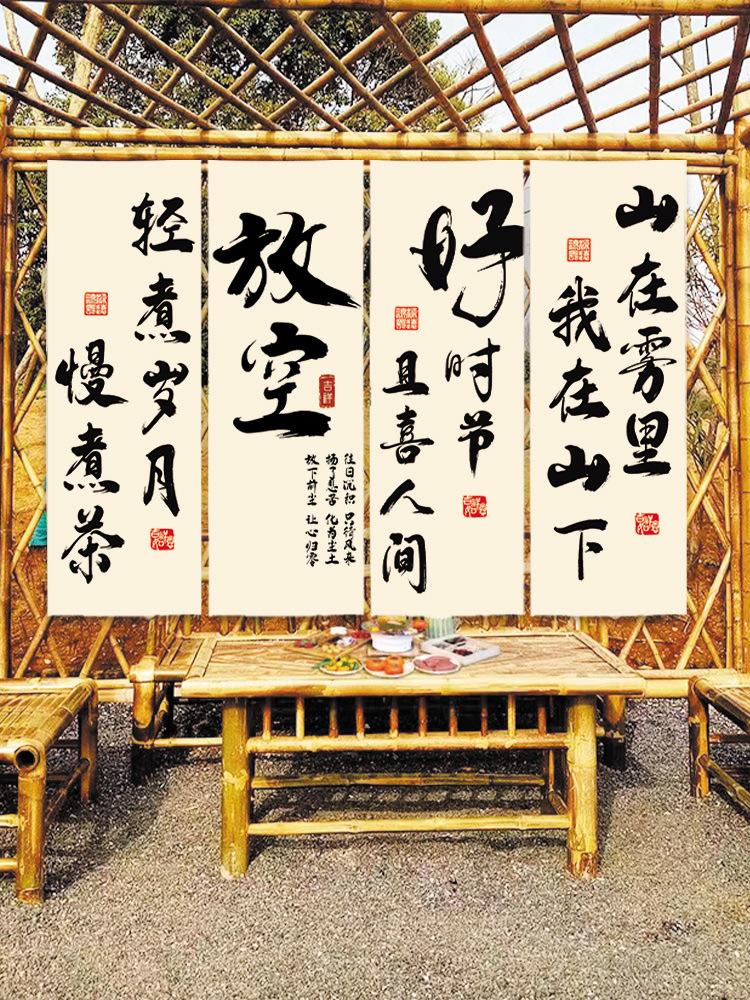 山在雾里
我在山下
好时节
且喜人间
放空
吉祥
往日沉积 只待风来
扬了悲苦 化为尘土
放下前尘 让心归零
轻煮岁月
慢煮茶